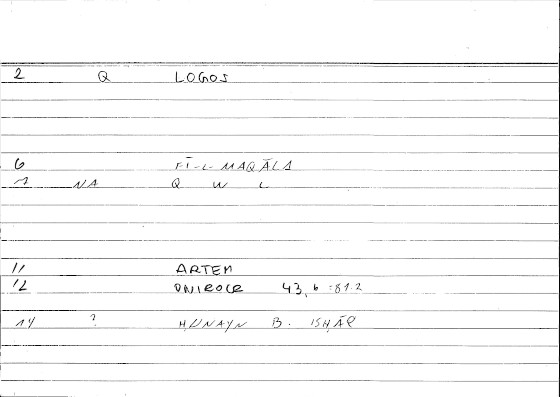 2 Q LOGOS
6 FĪ-L-MAQĀLA
1 NA Q W L
11 ARTEM
12 ONIROCR 43,6 = 81.2
14 ? ḤUNAYN B. ISḤĀQ